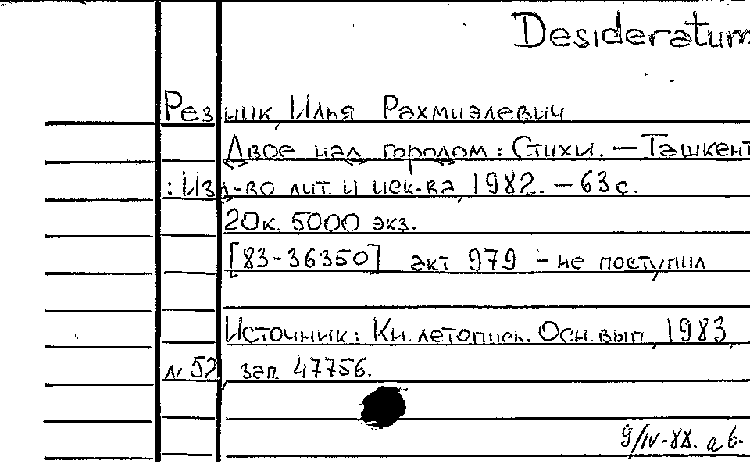 Desideratum
Резник, Илья Рахмиэлевич
Двое над городом : Стихи. — Ташкент
: Изд-во лит. и иск-ва, 1982. — 63 с.
20к. 5000 экз.
[83-36350] акт 979 - не поступил
Источник: Кн. летопись. Осн. вып., 1983,
№ 52, зап. 47756.
9/IV-88.